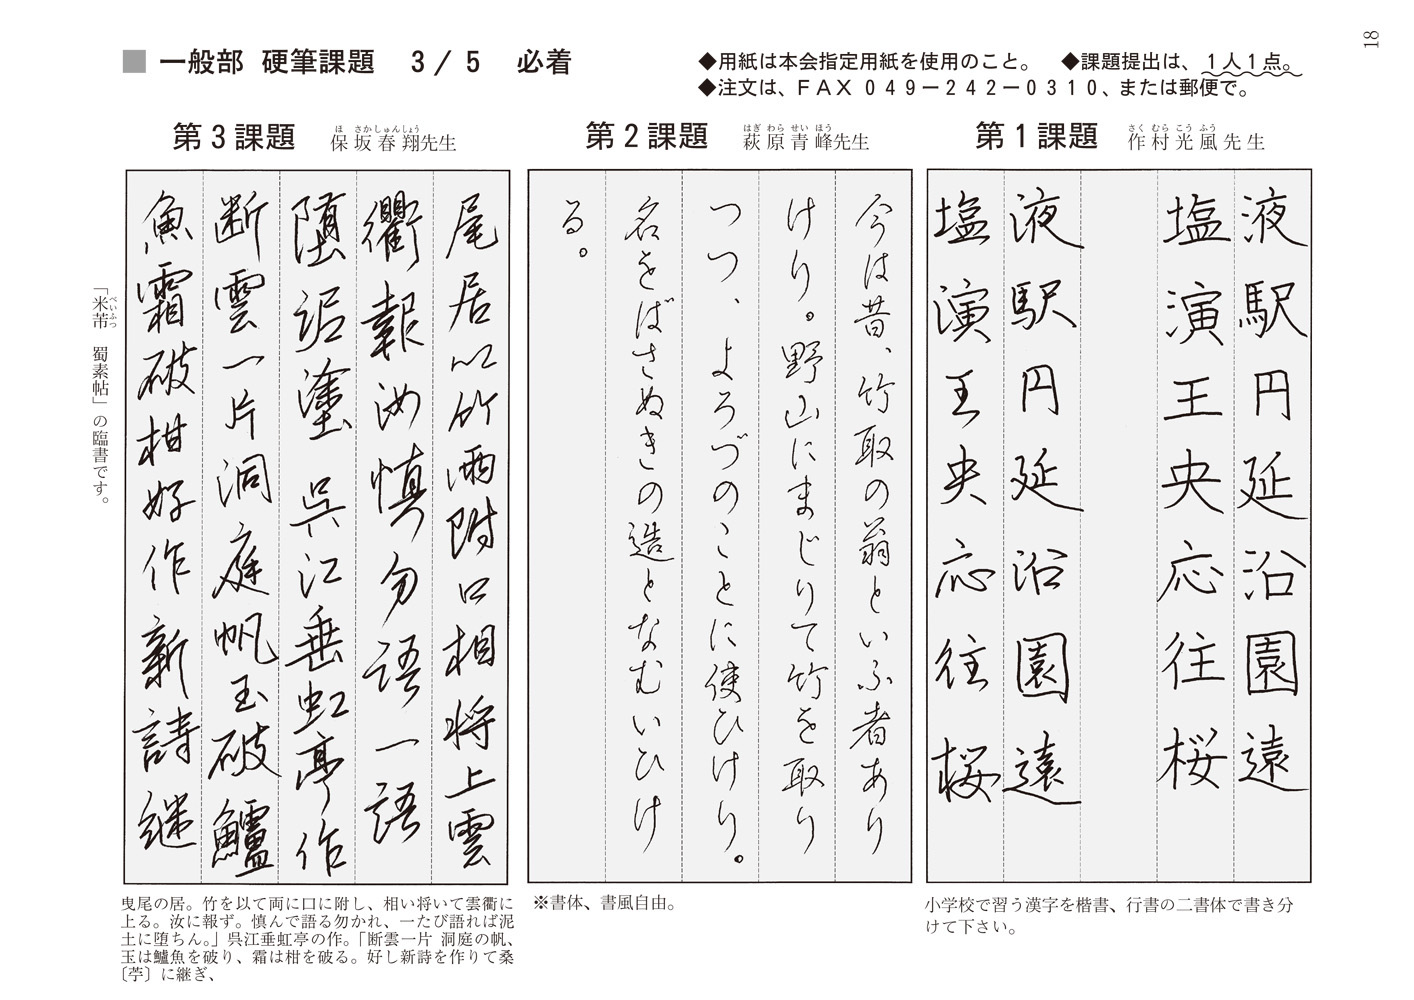 18
■ 一般部 硬筆課題 3/5 必着
◆用紙は本会指定用紙を使用のこと。 ◆課題提出は、1人1点。
◆注文は、FAX049－242－0310、または郵便で。
第1課題 作村光風先生
さくむらこうふう
液駅円延沿園遠
塩演王央応往桜
液駅円延沿園遠
塩演王央応往桜
小学校で習う漢字を楷書、行書の二書体で書き分
けて下さい。
第2課題 萩原青峰先生
はぎわらせいほう
今は昔、竹取の翁といふ者あり
けり。野山にまじりて竹を取り
つつ、よろづのことに使ひけり。
名をばさぬきの造となむいひけ
る。
※書体、書風自由。
第3課題 保坂春翔先生
ほさかしゅんしょう
尾居以竹両附口相将上雲
衢報汝慎勿語一語
堕泥塗 呉江垂虹亭作
断雲一片洞庭帆玉破鱸
魚霜破柑好作新詩継
曳尾の居。竹を以て両に口に附し、相い将いて雲衢に
上る。汝に報ず。慎んで語る勿かれ、一たび語れば泥
土に堕ちん。」呉江垂虹亭の作。「断雲一片 洞庭の帆、
玉は鱸魚を破り、霜は柑を破る。好し新詩を作りて桑
〔苧〕に継ぎ、
「米芾 蜀素帖」の臨書です。
べいふつ